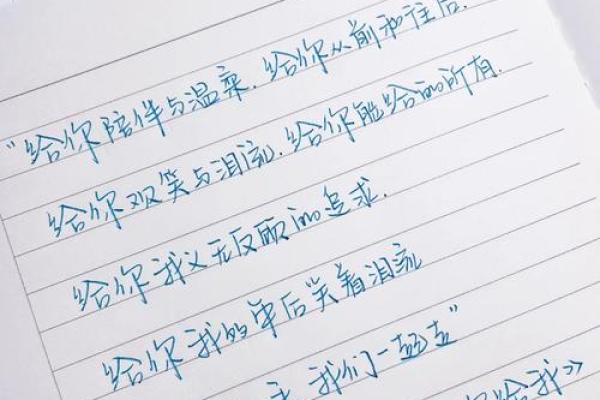 “给你陪伴与温柔.给你从前和往后.
给你欢笑与泪流.给你能给的所有.
给你我义无反顾的追求.
给你我的年后笑着泪流
我们一起走”
给我》